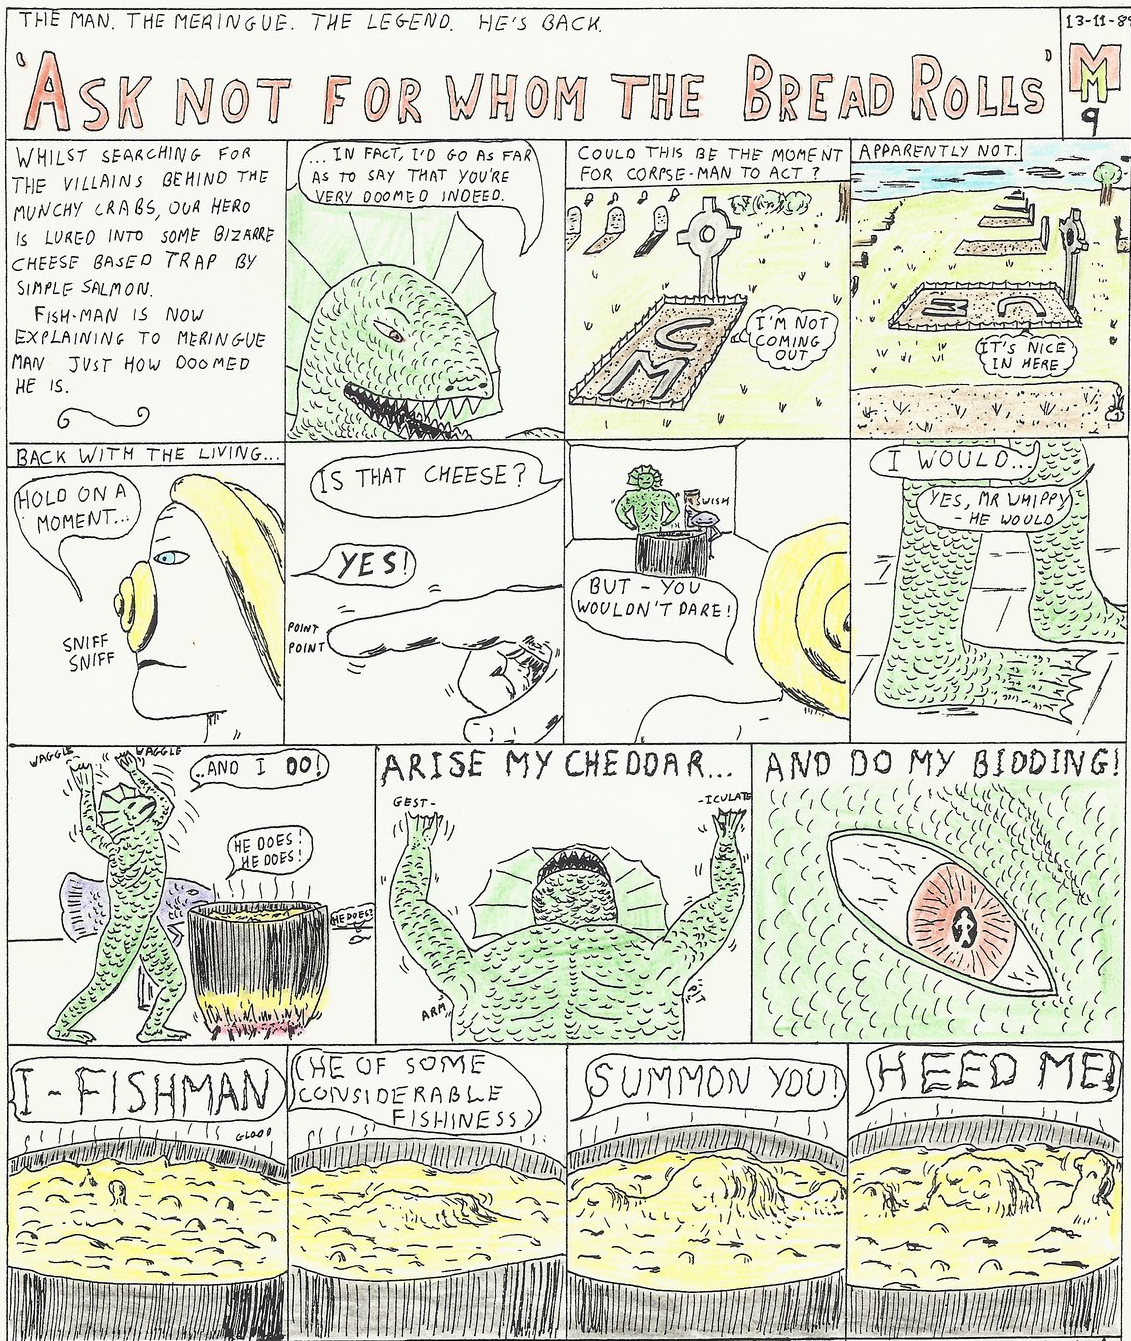 THE MAN. THE MERINGUE. THE LEGEND. HE'S BACK.
13-11-89
'ASK NOT FOR WHOM THE BREAD ROLLS'
MM
9
WHILST SEARCHING FOR
THE VILLAINS BEHIND THE
MUNCHY CRABS, OUR HERO
IS LURED INTO SOME BIZARRE
CHEESE BASED TRAP BY
SIMPLE SALMON.
FISH-MAN IS NOW
EXPLAINING TO MERINGUE
MAN JUST HOW DOOMED
HE IS.
... IN FACT, I'D GO AS FAR
AS TO SAY THAT YOU'RE
VERY DOOMED INDEED.
COULD THIS BE THE MOMENT
FOR CORPSE-MAN TO ACT?
CM
I'M NOT
COMING
OUT
APPARENTLY NOT.
CM
IT'S NICE
IN HERE
BACK WITH THE LIVING...
HOLD ON A
MOMENT...
SNIFF
SNIFF
IS THAT CHEESE?
YES!
POINT
POINT
SWISH
BUT - YOU
WOULDN'T DARE!
I WOULD...
YES, MR WHIPPY
- HE WOULD
WAGGLE
WAGGLE
..AND I DO!
HE DOES!
HE DOES!
HE DOES!
ARISE MY CHEDDAR...
GEST-
-ICULATE
ARM
PIT
AND DO MY BIDDING!
I - FISHMAN
GLOOP
(HE OF SOME
CONSIDERABLE
FISHINESS)
SUMMON YOU!
HEED ME!